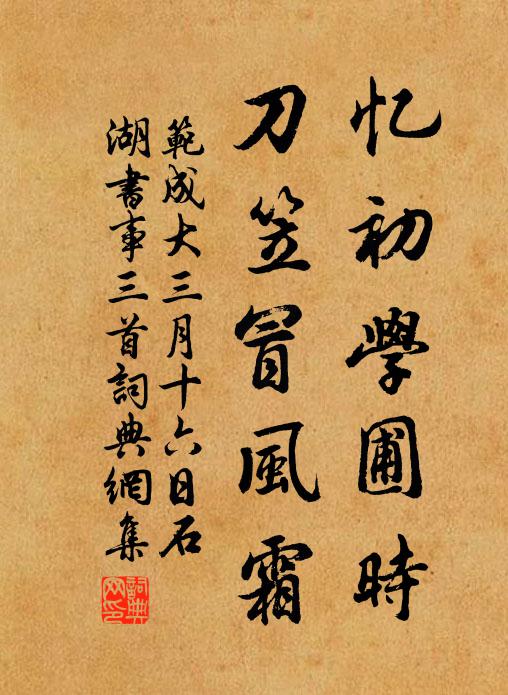 忆初學圃時
刀笠冒風霜
範成大三月十六日石
湖書事三首詞典網集
詞典网印